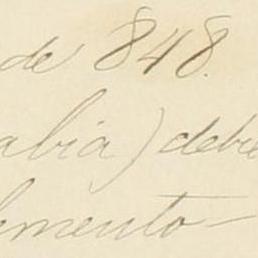 de 848.
abia) debe
lemento